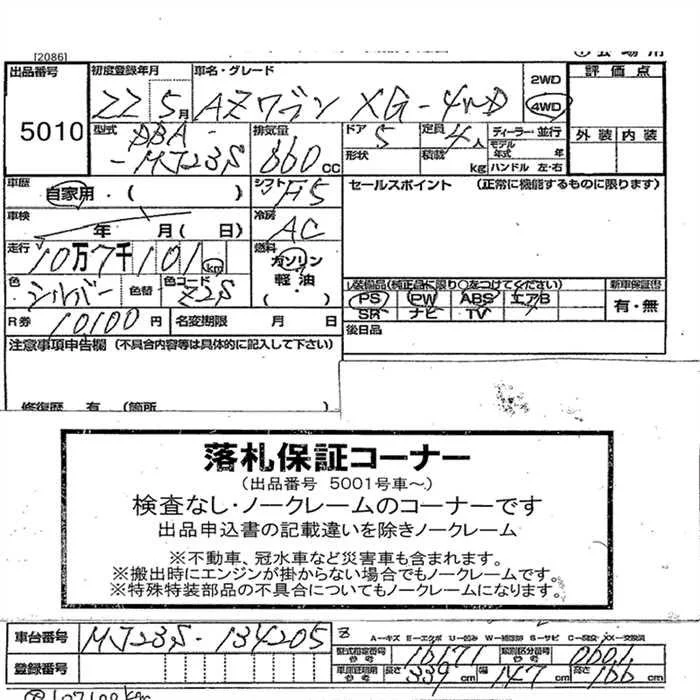 [2086]
出品番号 初度登録年月 車名・グレード 2WD 評価点
5010 22 5月 AZワゴン XG-4WD 4WD
型式 DBA- 排気量 ドア 5 定員 4人 ディーラー・並行 外装 内装
-MJ23S 660CC 形状 積載 kg モデル年式 年 ハンドル 左・右
車歴 自家用・( ) シフト セールスポイント (正常に機能するものに限ります)
車検 年 月(日) 冷房 AC
走行 10万7千101km 燃料 ガソリン
色 シルバー 色替 色コード Z2S 軽油 装備品(純正品に限り○をつけてください) 新車保証書
( ・ ) PS PW ABS エアB 有・無
R券 10100円 名変期限 月 日 SR ナビ TV
後日品
注意事項申告欄 (不具合内容等は具体的に記入して下さい)
修復歴 有 (箇所
落札保証コーナー
(出品番号 5001号車~)
検査なし・ノークレームのコーナーです
出品申込書の記載違いを除きノークレーム
※不動車、冠水車など災害車も含まれます。
※搬出時にエンジンが掛からない場合でもノークレームです。
※特殊特装部品の不具合についてもノークレームになります。
車台番号 MJ23S-134205
A-キズ E-エクボ U-凹み W-補修跡 S-サビ C-腐食 XX-交換済
型式指定番号 参考 16171 類別区分番号 参考 0601
登録番号 車庫証明用 参考 長さ 339cm 幅 147cm 高さ 166cm